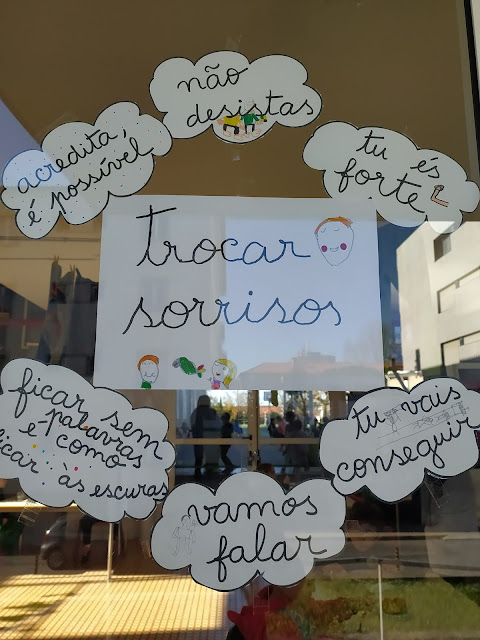 não
desistas
acredita,
é possível
tu és
forte
trocar
sorrisos
ficar sem
palavras
é como
ficar às escuras
tu vais
conseguir
vamos
falar